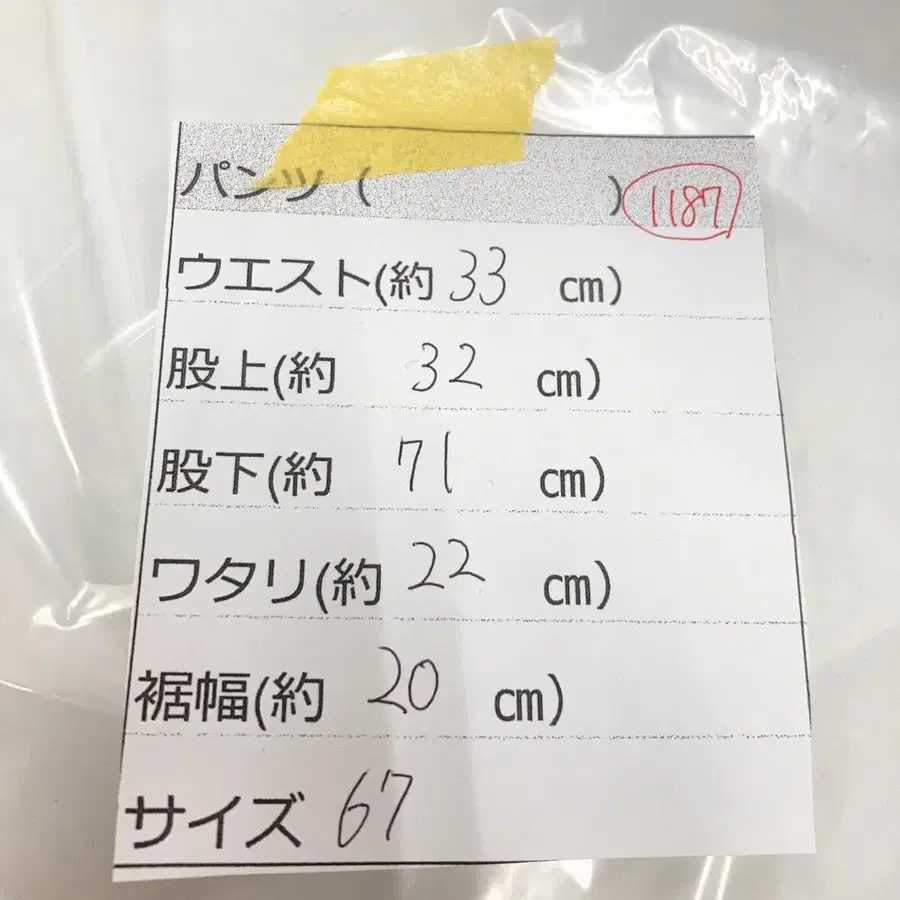 パンツ ( ) 1187
ウエスト(約 33 cm)
股上(約 32 cm)
股下(約 71 cm)
ワタリ(約 22 cm)
裾幅(約 20 cm)
サイズ 67